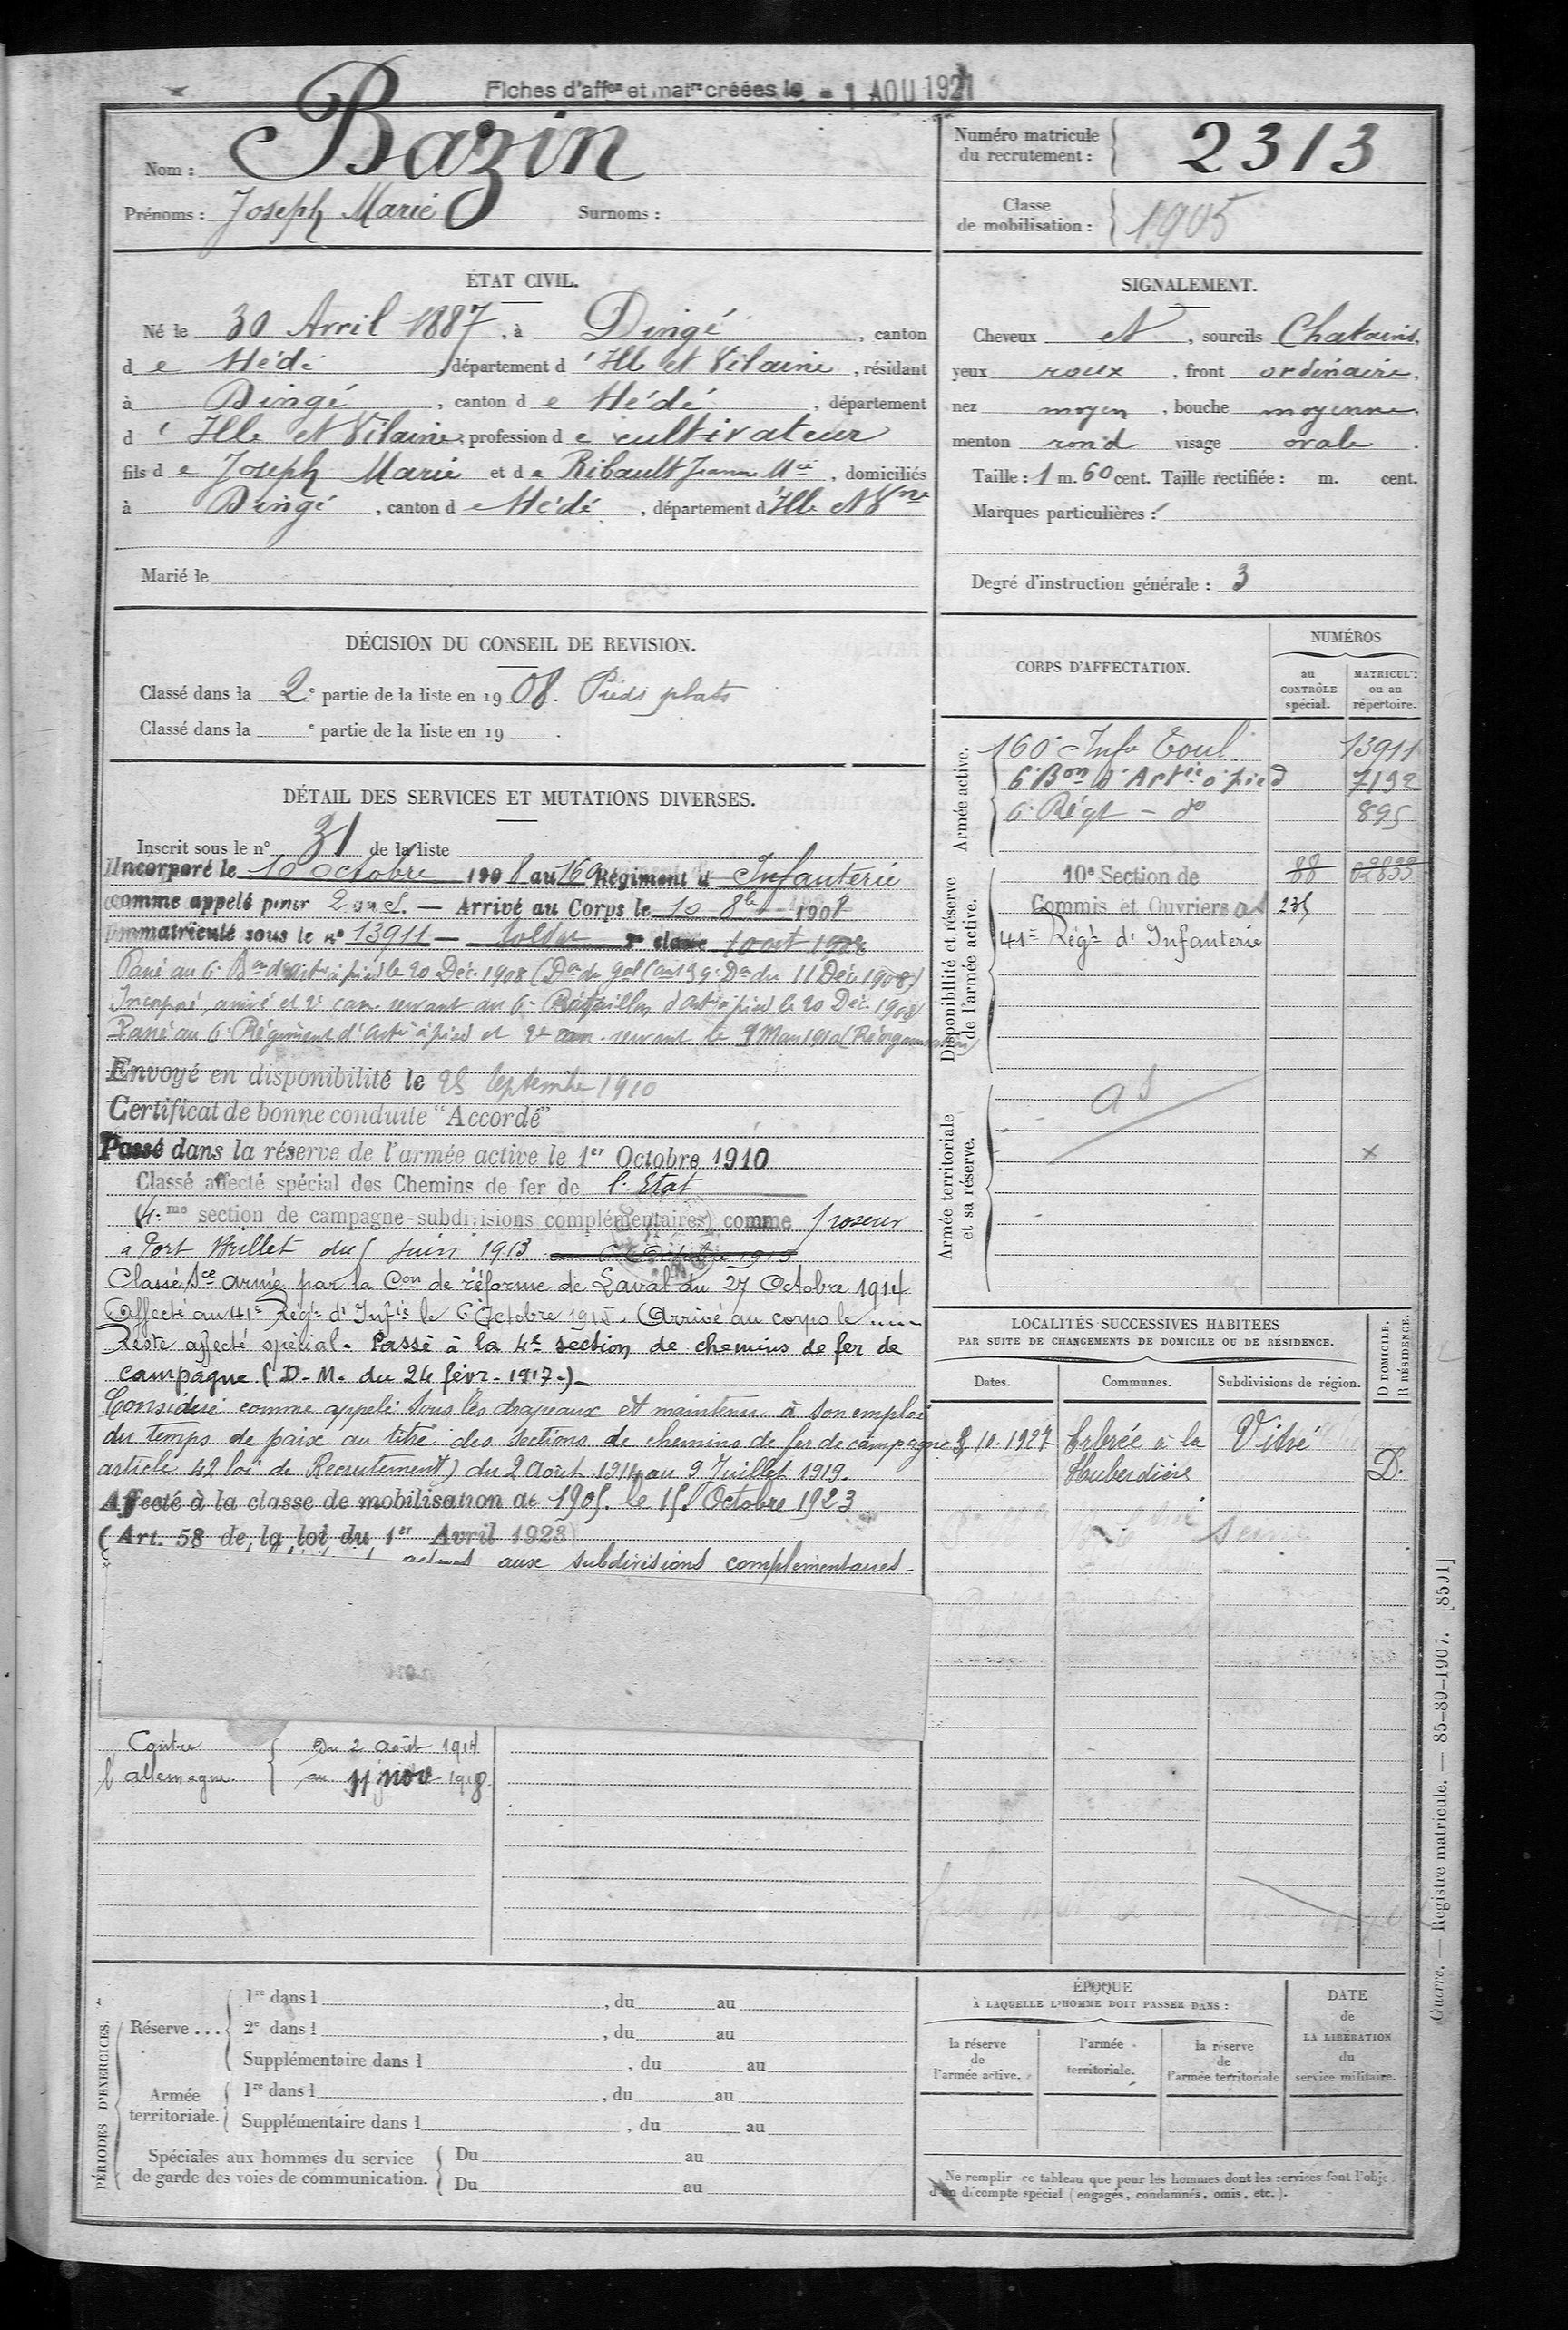 Fiches d'aff.on et mat.re créées le - 1 AOU 1921
Nom : Bazin
Prénoms : Joseph Marie Surnoms :
Numéro matricule du recrutement : 2313
Classe de mobilisation : 1905
ÉTAT CIVIL.
Né le 30 Avril 1887, à Dingé, canton
de Hédé département d'Ille et Vilaine, résidant
à Dingé, canton de Hédé, département
d'Ille et Vilaine, profession de cultivateur
fils de Joseph Marie et de Ribault Jeanne Mie, domiciliés
à Dingé, canton de Hédé, département d'Ille et Vne
Marié le
SIGNALEMENT.
Cheveux et, sourcils Chatains,
yeux roux, front ordinaire,
nez moyen, bouche moyenne,
menton rond visage ovale.
Taille : 1 m. 60 cent. Taille rectifiée : m. cent.
Marques particulières :
Degré d'instruction générale : 3
DÉCISION DU CONSEIL DE REVISION.
Classé dans la 2e partie de la liste en 1908. Pieds plats
Classé dans la e partie de la liste en 19 .
DÉTAIL DES SERVICES ET MUTATIONS DIVERSES.
Inscrit sous le n° 31 de la liste
Incorporé le 10 octobre 1908 au 160 Régiment d'Infanterie
comme appelé pour 2 ans. — Arrivé au Corps le 10 8bre 1908
Immatriculé sous le n° 13911 — soldat 2e classe 10 oct 1908
Passé au 6e Bon d'Artie à pied le 20 Déc. 1908 (Don du Gal Cant 39e Don du 11 Déc 1908)
Incorporé, arrivé et 2e can. servant au 6e Bataillon d'Artie à pied le 20 Déc. 1908
Passé au 6e Régiment d'Artie à pied et 2e can. servant le 1 Mars 1910 (Réorganisation)
Envoyé en disponibilité le 25 Septembre 1910
Certificat de bonne conduite "Accordé"
Passé dans la réserve de l'armée active le 1er Octobre 1910
Classé affecté spécial des Chemins de fer de l'Etat
(4.me section de campagne-subdivisions complémentaires) comme poseur
à Port Brillet du 5 Juin 1913
Classé Sce armé par la Con de réforme de Laval du 27 Octobre 1914
Affecté au 41e Régt d'Infie le 6 Octobre 1915. Arrivé au corps le .....
Reste affecté spécial. Passé à la 4e section de chemins de fer de
campagne (D.M. du 24 févr. 1917.)
Considéré comme appelé sous les drapeaux et maintenu à son emploi
du temps de paix au titre des sections de chemins de fer de campagne
article 42 loi de Recrutement) du 2 Août 1914 au 9 Juillet 1919.
Affecté à la classe de mobilisation de 1905. le 15 Octobre 1923
(Art. 58 de la loi du 1er Avril 1923)
aux subdivisions complémentaires -
Contre l'allemagne. { Du 2 août 1914
au 11 nov 1918
CORPS D'AFFECTATION.
NUMÉROS
au CONTRÔLE spécial.
MATRICULE ou au répertoire.
Armée active.
160e Infie Toul 13911
6e Bon d'Artie à pied 7192
6e Régt - do 895
Disponibilité et réserve de l'armée active.
10e Section de 88 02833
Commis et Ouvriers as 235
41e Régt d'Infanterie
Armée territoriale et sa réserve.
as
x
LOCALITÉS SUCCESSIVES HABITÉES
PAR SUITE DE CHANGEMENTS DE DOMICILE OU DE RÉSIDENCE.
Dates. Communes. Subdivisions de région. D DOMICILE. R RÉSIDENCE.
8.10.1927 Erbrée à la Vitré
Huberdière D.
PÉRIODES D'EXERCICES.
Réserve ... 1re dans l , du au
2e dans l , du au
Supplémentaire dans l , du au
Armée territoriale. 1re dans l , du au
Supplémentaire dans l , du au
Spéciales aux hommes du service de garde des voies de communication. Du au
Du au
ÉPOQUE
À LAQUELLE L'HOMME DOIT PASSER DANS :
la réserve de l'armée active.
l'armée territoriale.
la réserve de l'armée territoriale
DATE de LA LIBÉRATION du service militaire.
Ne remplir ce tableau que pour les hommes dont les services font l'objet
d'un décompte spécial (engagés, condamnés, omis, etc.).
Guerre. — Registre matricule. — 85-89-1907. [8591]